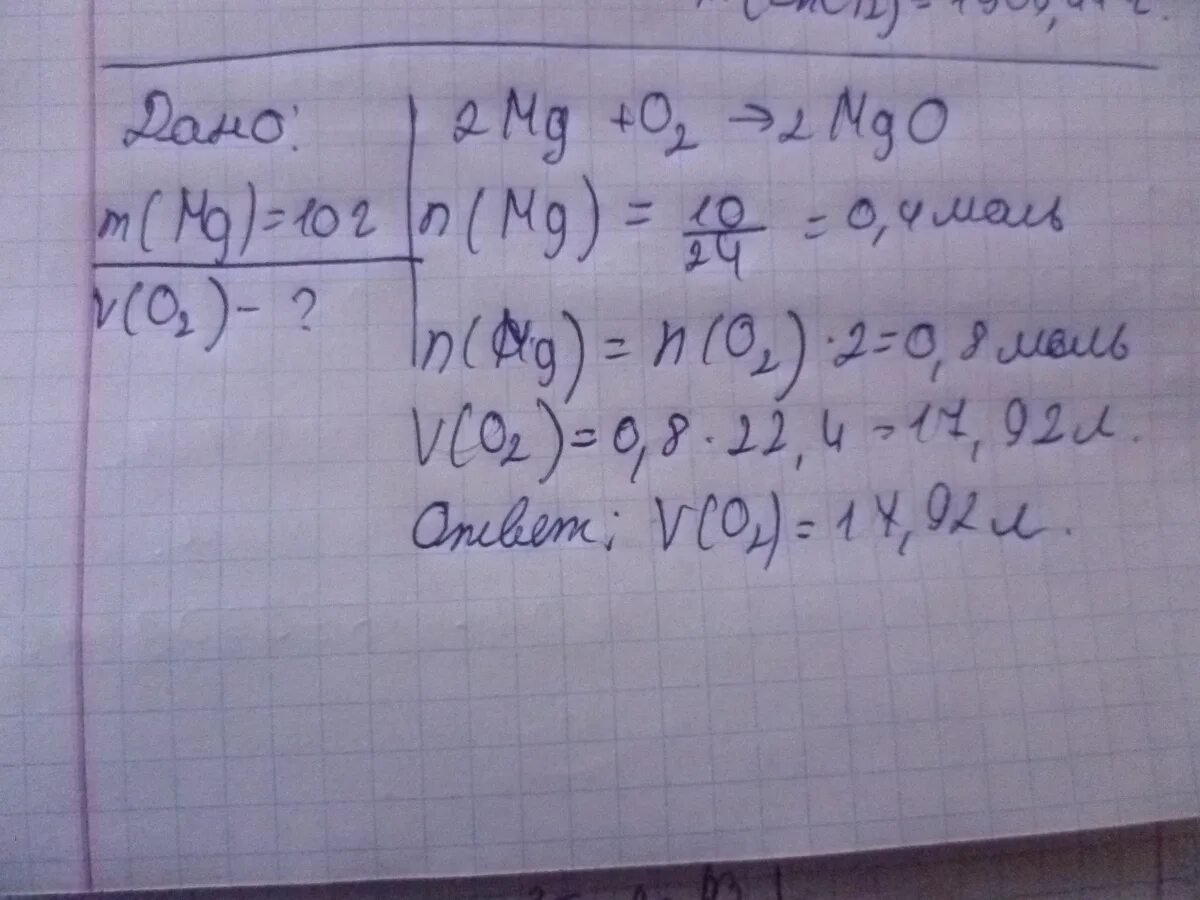 Дано:
m(Mg)=10г
V(O₂)-?
2Mg+O₂→2MgO
n(Mg)=10/24=0,4моль
n(Mg)=n(O₂)·2=0,8моль
V(O₂)=0,8·22,4=17,92л.
Ответ: V(O₂)=17,92л.